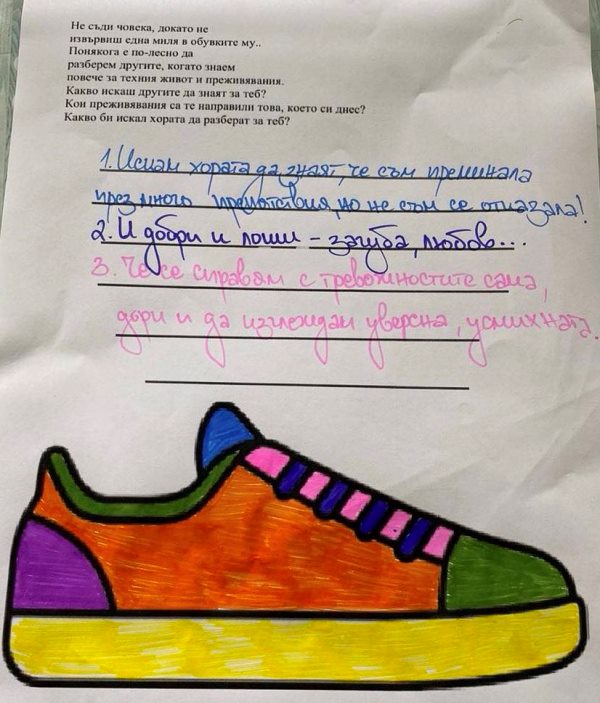 Не съди човека, докато не
извървиш една миля в обувките му..
Понякога е по-лесно да
разберем другите, когато знаем
повече за техния живот и преживявания.
Какво искаш другите да знаят за теб?
Кои преживявания са те направили това, което си днес?
Какво би искал хората да разберат за теб?
1. Искам хората да знаят, че съм преминала
през много препятствия, но не съм се отказала!
2. И добри и лоши - загуба, любов...
3. Че се справям с тревожностите сама,
дори и да изглеждам уверена, усмихната.